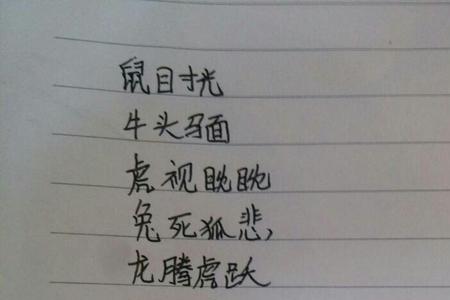 鼠目寸光
牛头马面
虎视眈眈
兔死狐悲，
龙腾虎跃